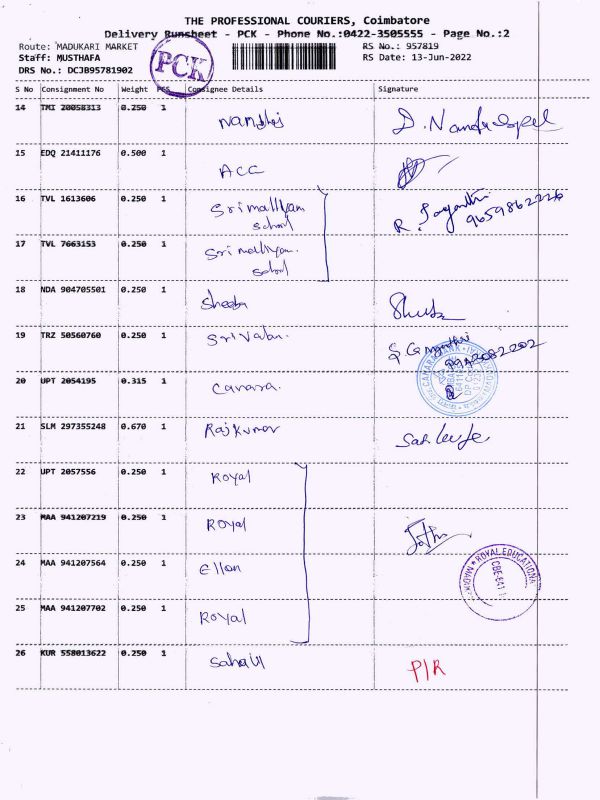 THE PROFESSIONAL COURIERS, Coimbatore
Delivery Runsheet - PCK - Phone No.:0422-3505555 - Page No.:2
Route: MADUKARI MARKET
RS No.: 957819
Staff: MUSTHAFA
RS Date: 13-Jun-2022
DRS No.: DCJB95781902
PCK
S No Consignment No Weight PCS Consignee Details Signature
14 TMI 20058313 0.250 1
D. Nandagopal
15 EDQ 21411176 0.500 1 ACC
16 TVL 1613606 0.250 1 Srimalliyam
School
R. Jayanthi
9659862226
17 TVL 7663153 0.250 1 Srimalliyam.
School
18 NDA 904705501 0.250 1 Sheeba
Sheeba
19 TRZ 50560760 0.250 1
20 UPT 2054195 0.315 1 Canara.
CANARA BANK
21 SLM 297355248 0.670 1 Rajkumar
22 UPT 2057556 0.250 1 Royal
23 MAA 941207219 0.250 1 Royal
24 MAA 941207564 0.250 1 Ellen
ROYAL EDUCATIONA
25 MAA 941207702 0.250 1 Royal
26 KUR 558013622 0.250 1
P/R